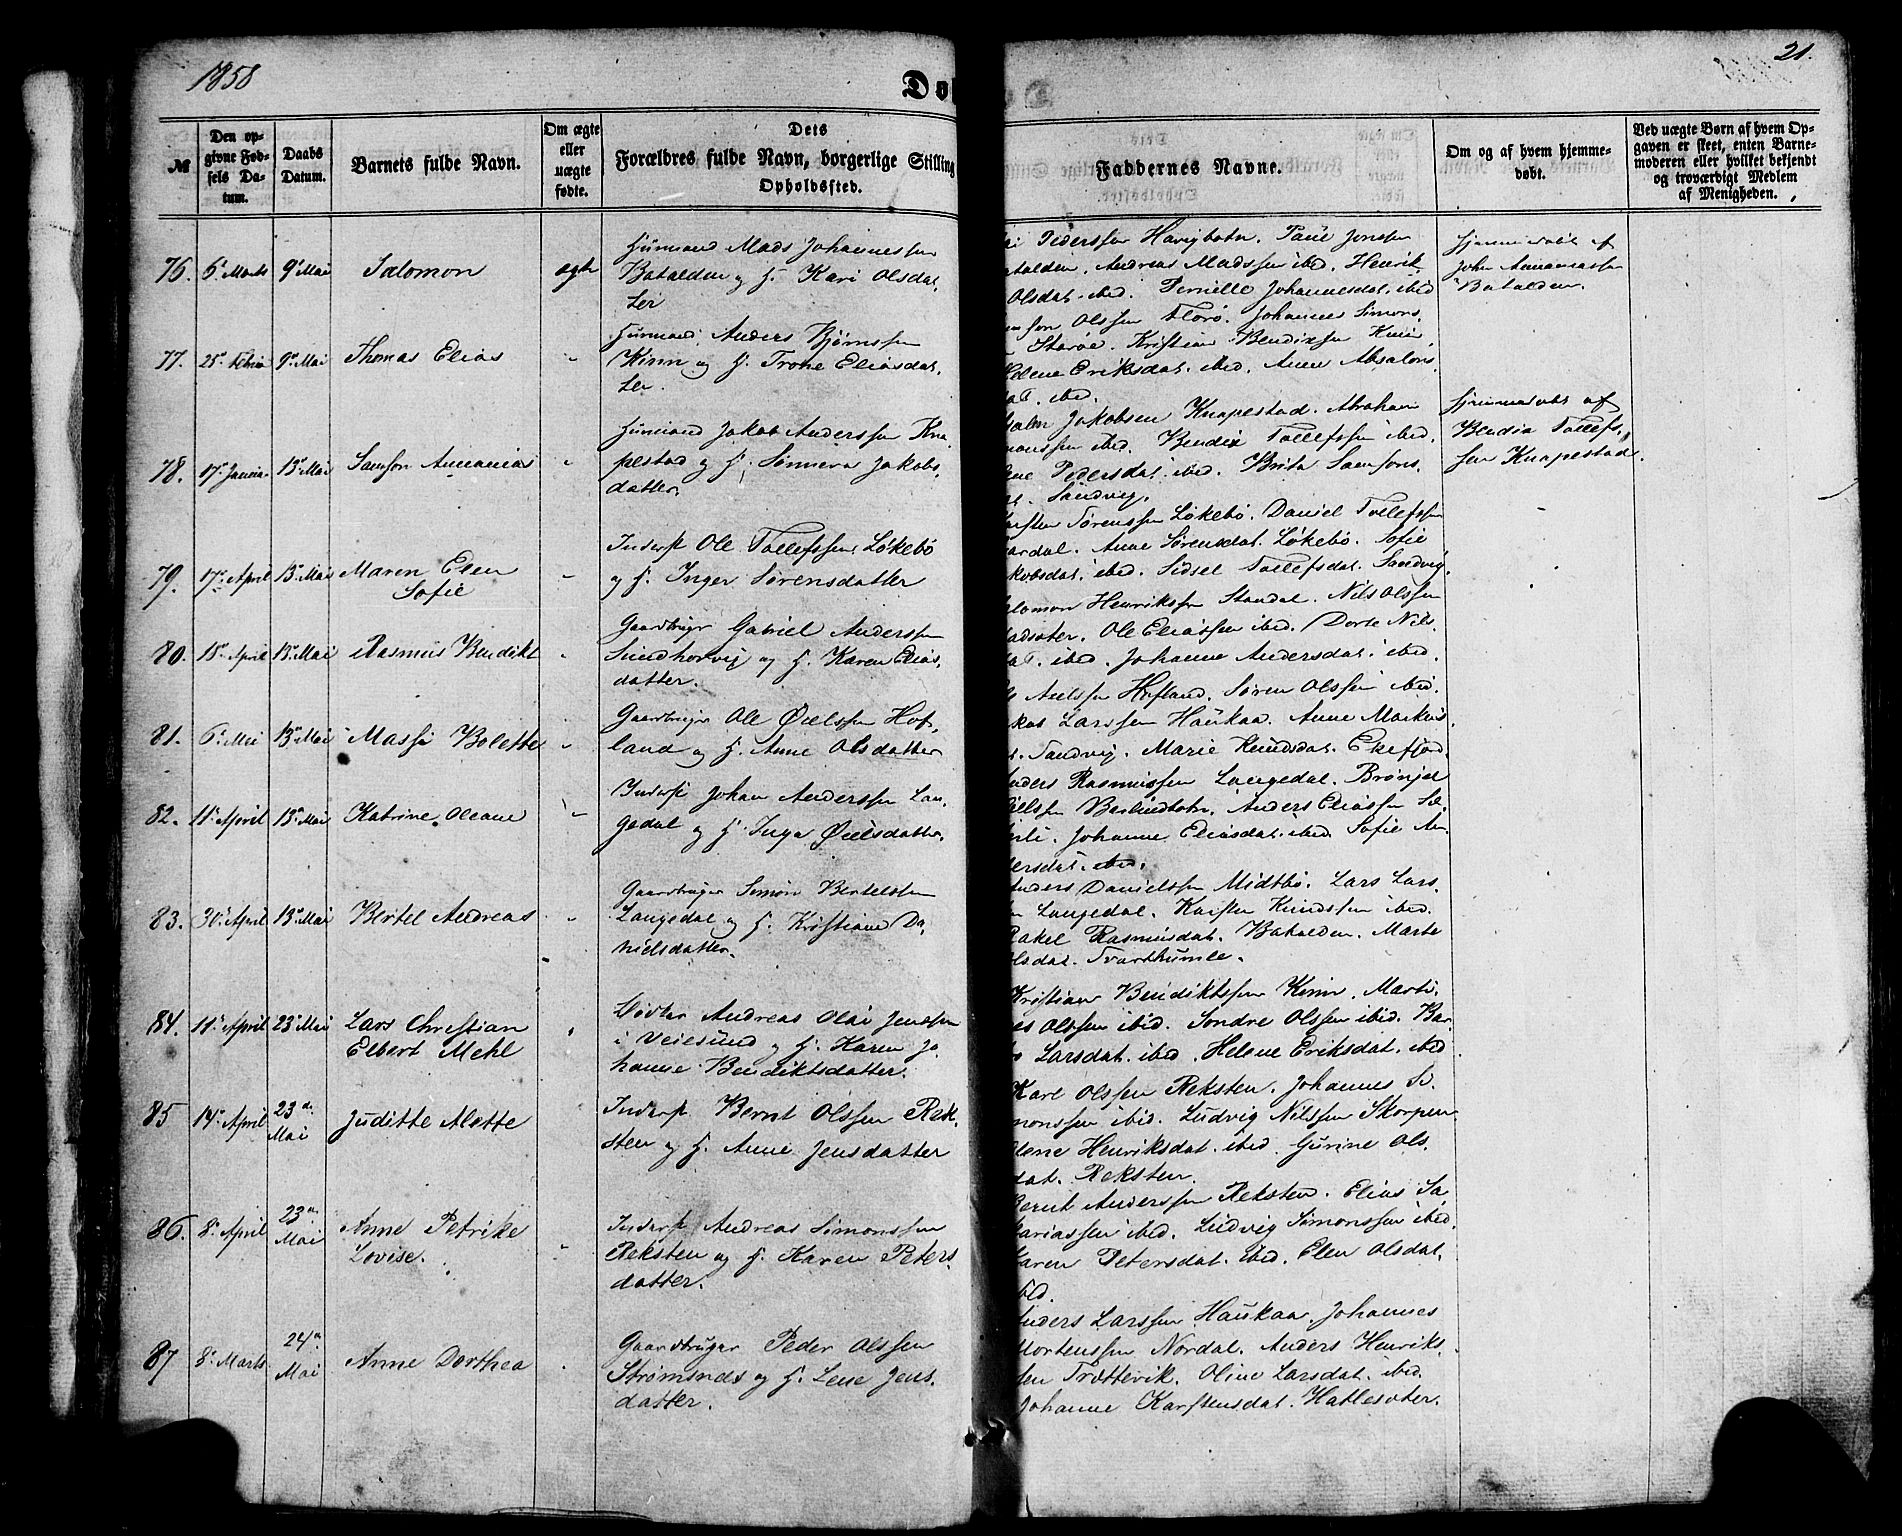 1858
21.
Døb
№
Den opgivne Fødsels Datum.
Daabs Datum.
Barnets fulde Navn.
Om ægte eller uægte fødte.
Dets
Forældres fulde Navn, borgerlige Stilling
Opholdssted.
Faddernes Navne.
Om og af hvem hjemmedøbt.
Ved uægte Børn af hvem Opgaven er skeet, enten Barnemoderen eller hvilket bekjendt og troværdigt Medlem af Menigheden.
76. 6te Marts 9de Mai Salomon ægte
Huusmand Mads Johannessen
Batalden og H. Kari Olsdat.
ter
Pederssen Havigbotn. Paul Jonssen
talden. Andreas Madssen ibid. Henrik.
Olsdat. ibid. Pernille Johannesdat. ibid
Hjemmedøbt af
John Annanias
Batalden.
77. 25de 9de Mai Thomas Elias "
Huusmand Anders Bjørnssen
Kinn og H. Trone Eliasdat.
ter.
Olssen Florø. Johannes Simons.
Storøe. Kristian Bendixsen Kinn
Helene Eriksdat. ibid. Anne Absalons.
dat. ibid.
78. 17de Januar 13de Mai Samson Annanias "
Huusmand Jakob Anderssen Kna
pestad og H. Sønneva Jakobs
datter.
Jakobsen Knapestad. Abraham
monssen ibid. Bendix Tollefssen ibid.
Pedersdat. ibid. Brita Samsons.
Sandvig.
Hjemmedøbt af
Bendix Tollefs.
sen Knapestad.
79. 17de April 13de Mai Maren Elen
Sofie "
Inderst Ole Tollefssen Løkebø
og H. Inger Sørensdatter
Karsten Sørenssen Løkebø. Daniel Tollefssen
ardal. Anne Sørensdat. Løkebø. Sofie
kobsdat. ibid. Sidsel Tollefsdat. Sandvig.
80. 18de April 13de Mai Rasmus Bendikt "
Gaardbruger Gabriel Anderssen
Sundhorvig og H. Karen Elias
datter.
lomon Henrikssen Standal. Nils Olssen
adsæter. Ole Eliassen ibid. Dorte Nils.
dat. ibid. Johanne Andersdat. ibid.
81. 6te Mai 13de Mai Massi Bolette "
Gaardbruger Ole Øielssen Hof.
land og H. Anne Olsdatter
Axelssen Hofland. Søren Olssen ibid.
Larssen Haukaa. Anne Markus
Sandvig. Marie Knudsdat. Ekefjord.
82. 11te April 13de Mai Katrine Oleane "
Inderst Johan Anderssen Lan.
gedal og H. Inga Øielsdatter.
nders Rasmussen Langedal. Brønjel
Berlindbotn. Anders Eliassen Sel.
Johanne Eliasdat. ibid Sofie An.
dersdat. ibid.
83. 30te April 13de Mai Bertel Andreas "
Gaardbruger Simon Bertelssen
Langedal og H. Kristiane Da
nielsdatter.
Anders Danielssen Midtbø. Lars Lars.
Langedal. Karsten Knudssen ibid.
Rakel Rasmusdat. Batalden. Marte
Olsdat. Svarthumle.
84. 11te April 23de Mai Lars Christian
Elbert Mehl "
Andreas Olai Jenssen
i Veiesund og H. Karen Jo
hanne Bendiktsdatter.
Kristian Bendiktssen Kinn. Marti.
es Olssen ibid. Sondre Olssen ibid. Bar.
Larsdat. ibid. Helene Eriksdat. ibid
85 14de April 23de
Mai Juditte Alette
Inderst Bernt Olssen Rek.
sten og H. Anne Jensdatter
Karl Olssen Reksten. Johannes Si.
monssen ibid. Ludvig Nilssen Skorpen
Henriksdat. ibid. Gurine Ols
dat. Reksten.
86. 8de April 23de
Mai Anne Petrike
Lovise. "
Inderst Andreas Simonssen
Reksten og H. Karen Peters
datter.
Bernt Anderssen Reksten. Elias Sa
kariassen ibid. Ludvig Simonssen ibid.
Karen Petersdat. ibid. Elen Olsdat.
ibid.
87 8de Marts 24de
Mai Anne Dorthea "
Gaardbruger Peder Olssen
Strømsnes og H. Lene Jens.
datter.
Anders Larssen Haukaa. Johannes
Mortenssen Nordal. Anders Henriks.
sen Trættevik. Oline Larsdat. ibid.
Johanne Karstensdat. Hatlesæter.